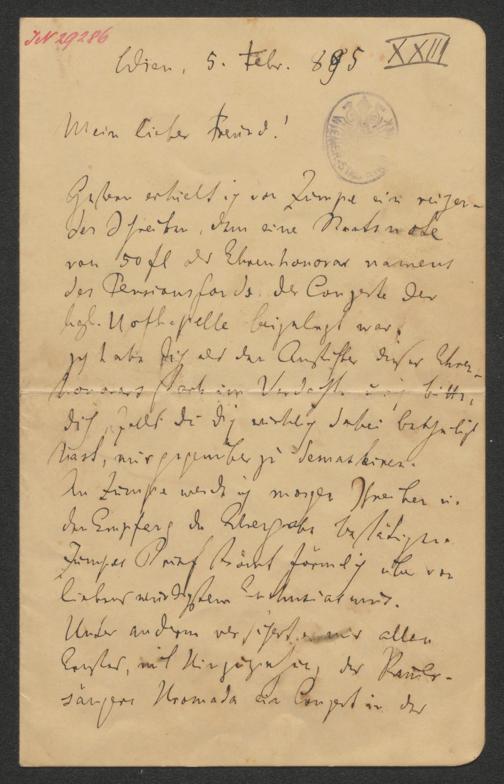 JN 29286
XXIII
Wien, 5. Febr. 895
Mein lieber Freund!
Gestern erhielt ich von Zumpe ein reizen-
des Schreiben, dem eine Staatsnote
von 50 fl als Ehrenhonorar namens
des Pensionsfonds der Conzerte der
kgl. Hofkapelle beigelegt war.
Ich habe dich als den Anstifter dieser Ehren-
honorars stark im Verdacht u. ich bitte
dich, falls du dich wirklich dabei betheiligt
hast, mir gegenüber zu demaskiren.
An Zumpe werde ich morgen schreiben u.
den Empfang der Ehrengabe bestätigen.
Zumpes Brief strömt förmlich über von
liebenswürdigstem Enthusiasmus.
Unter anderm versichert er mir allen
Ernstes, mit Hinzuziehung des Kammer-
sängers Hromada ein Conzert in der